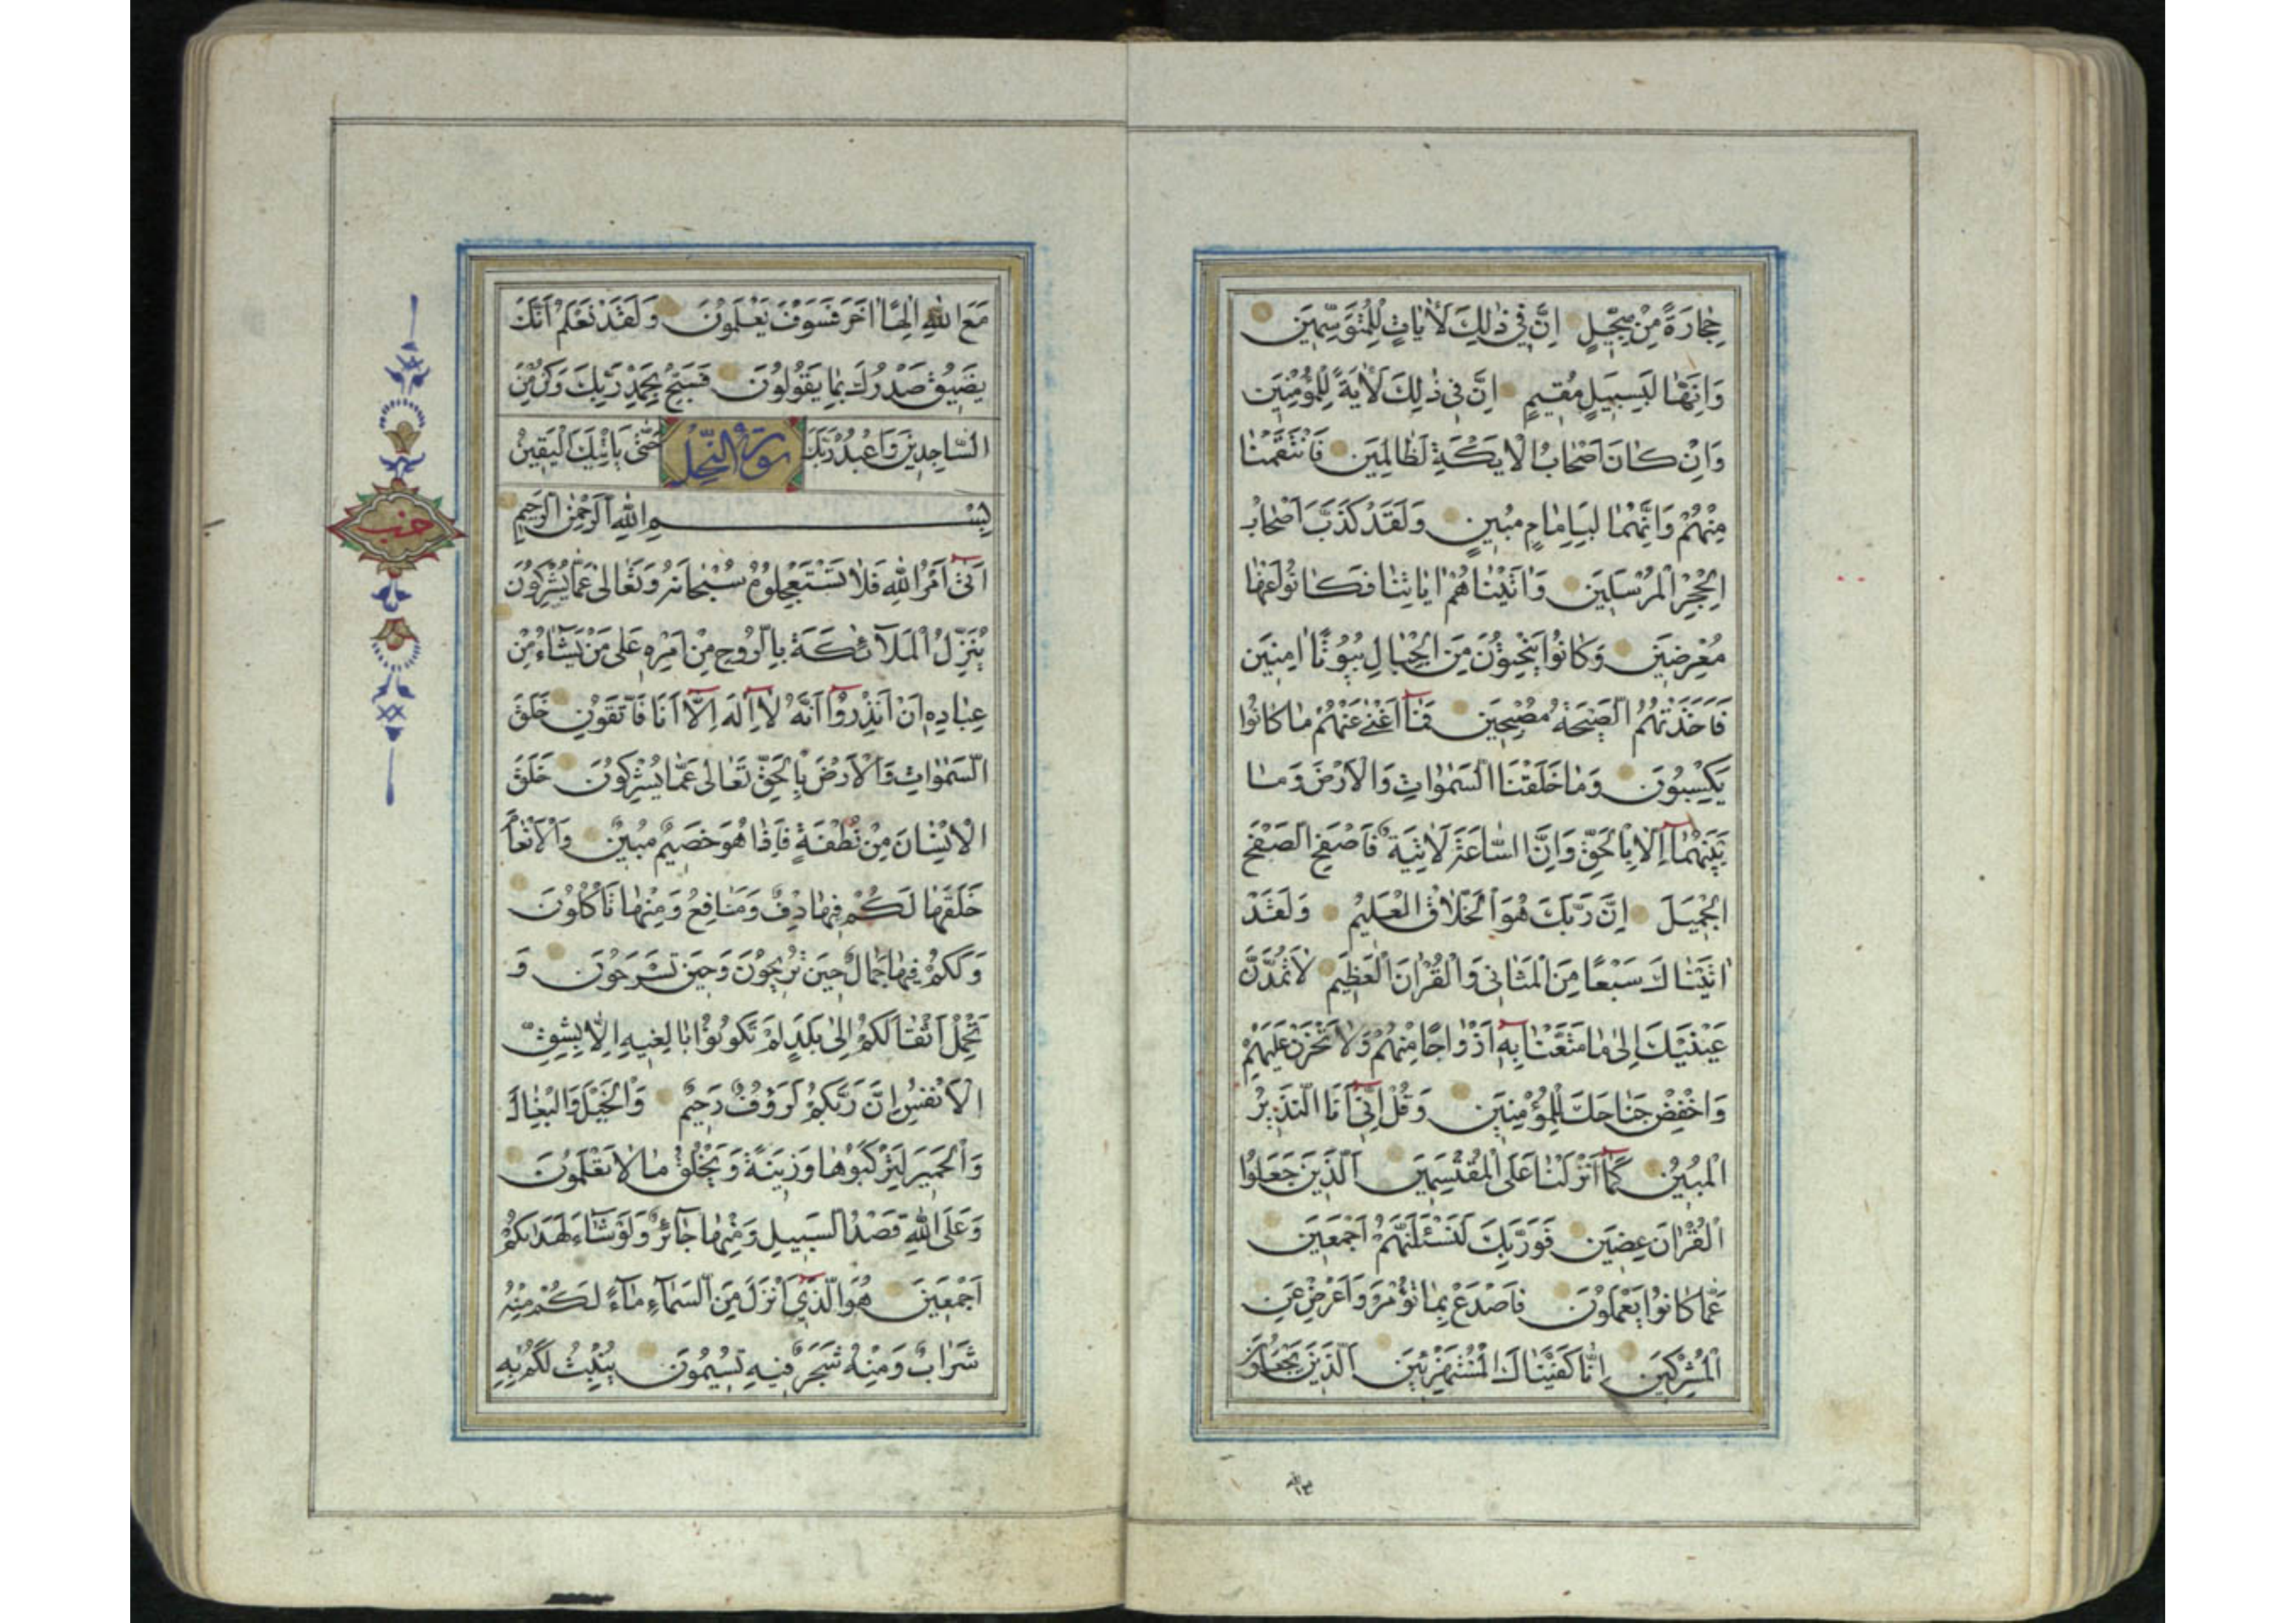 حِجَارَةً مِنْ سِجّيلٍ اِنَّ فِي ذٰلِكَ لَاٰيَاتٍ لِلْمُتَوَسِّمِينَ
وَاِنَّهَا لَبِسَبِيلٍ مُقِيمٍ اِنَّ فِي ذٰلِكَ لَاٰيَةً لِلْمُؤْمِنِينَ
وَاِنْ كَانَ اَصْحَابُ الْاَيْكَةِ لَظَالِمِينَ فَانْتَقَمْنَا
مِنْهُمْ وَاِنَّهُمَا لَبِاِمَامٍ مُبِينٍ وَلَقَدْ كَذَّبَ اَصْحَابُ
الْحِجْرِ الْمُرْسَلِينَ وَاٰتَيْنَاهُمْ اٰيَاتِنَا فَكَانُوا عَنْهَا
مُعْرِضِينَ وَكَانُوا يَنْحِتُونَ مِنَ الْجِبَالِ بُيُوتًا اٰمِنِينَ
فَاَخَذَتْهُمُ الصَّيْحَةُ مُصْبِحِينَ فَمَآ اَغْنٰى عَنْهُمْ مَا كَانُوا
يَكْسِبُونَ وَمَا خَلَقْنَا السَّمٰوَاتِ وَالْاَرْضَ وَمَا
بَيْنَهُمَآ اِلَّا بِالْحَقِّ وَاِنَّ السَّاعَةَ لَاٰتِيَةٌ فَاصْفَحِ الصَّفْحَ
الْجَمِيلَ اِنَّ رَبَّكَ هُوَ الْخَلَّاقُ الْعَلِيمُ وَلَقَدْ
اٰتَيْنَاكَ سَبْعًا مِنَ الْمَثَانِي وَالْقُرْاٰنَ الْعَظِيمَ لَا تَمُدَّنَّ
عَيْنَيْكَ اِلٰى مَا مَتَّعْنَا بِهِٓ اَزْوَاجًا مِنْهُمْ وَلَا تَحْزَنْ عَلَيْهِمْ
وَاخْفِضْ جَنَاحَكَ لِلْمُؤْمِنِينَ وَقُلْ اِنِّيٓ اَنَا النَّذِيرُ
الْمُبِينُ كَمَآ اَنْزَلْنَا عَلَى الْمُقْتَسِمِينَ اَلَّذِينَ جَعَلُوا
الْقُرْاٰنَ عِضِينَ فَوَرَبِّكَ لَنَسْئَلَنَّهُمْ اَجْمَعِينَ
عَمَّا كَانُوا يَعْمَلُونَ فَاصْدَعْ بِمَا تُؤْمَرُ وَاَعْرِضْ عَنِ
الْمُشْرِكِينَ اِنَّا كَفَيْنَاكَ الْمُسْتَهْزِئِينَ اَلَّذِينَ يَجْعَلُونَ
مع الله
مَعَ اللّٰهِ اِلٰهًا اٰخَرَ فَسَوْفَ يَعْلَمُونَ وَلَقَدْ نَعْلَمُ اَنَّكَ
يَضِيقُ صَدْرُكَ بِمَا يَقُولُونَ فَسَبِّحْ بِحَمْدِ رَبِّكَ وَكُنْ مِنَ
السَّاجِدِينَ وَاعْبُدْ رَبَّكَ حَتّٰى يَاْتِيَكَ الْيَقِينُ
سورة النحل
بِسْمِ اللّٰهِ الرَّحْمٰنِ الرَّحِيمِ
حزب
اَتٰىٓ اَمْرُ اللّٰهِ فَلَا تَسْتَعْجِلُوهُ سُبْحَانَهُ وَتَعَالٰى عَمَّا يُشْرِكُونَ
يُنَزِّلُ الْمَلَآئِكَةَ بِالرُّوحِ مِنْ اَمْرِهِ عَلٰى مَنْ يَشَآءُ مِنْ
عِبَادِهِٓ اَنْ اَنْذِرُوٓا اَنَّهُ لَآ اِلٰهَ اِلَّآ اَنَا فَاتَّقُونِ خَلَقَ
السَّمٰوَاتِ وَالْاَرْضَ بِالْحَقِّ تَعَالٰى عَمَّا يُشْرِكُونَ خَلَقَ
الْاِنْسَانَ مِنْ نُطْفَةٍ فَاِذَا هُوَ خَصِيمٌ مُبِينٌ وَالْاَنْعَامَ
خَلَقَهَا لَكُمْ فِيهَا دِفْءٌ وَمَنَافِعُ وَمِنْهَا تَاْكُلُونَ
وَلَكُمْ فِيهَا جَمَالٌ حِينَ تُرِيحُونَ وَحِينَ تَسْرَحُونَ وَ
تَحْمِلُ اَثْقَالَكُمْ اِلٰى بَلَدٍ لَمْ تَكُونُوا بَالِغِيهِ اِلَّا بِشِقِّ
الْاَنْفُسِ اِنَّ رَبَّكُمْ لَرَؤُفٌ رَحِيمٌ وَالْخَيْلَ وَالْبِغَالَ
وَالْحَمِيرَ لِتَرْكَبُوهَا وَزِينَةً وَيَخْلُقُ مَا لَا تَعْلَمُونَ
وَعَلَى اللّٰهِ قَصْدُ السَّبِيلِ وَمِنْهَا جَآئِرٌ وَلَوْ شَآءَ لَهَدٰيكُمْ
اَجْمَعِينَ هُوَ الَّذِيٓ اَنْزَلَ مِنَ السَّمَآءِ مَآءً لَكُمْ مِنْهُ
شَرَابٌ وَمِنْهُ شَجَرٌ فِيهِ تُسِيمُونَ يُنْبِتُ لَكُمْ بِهِ